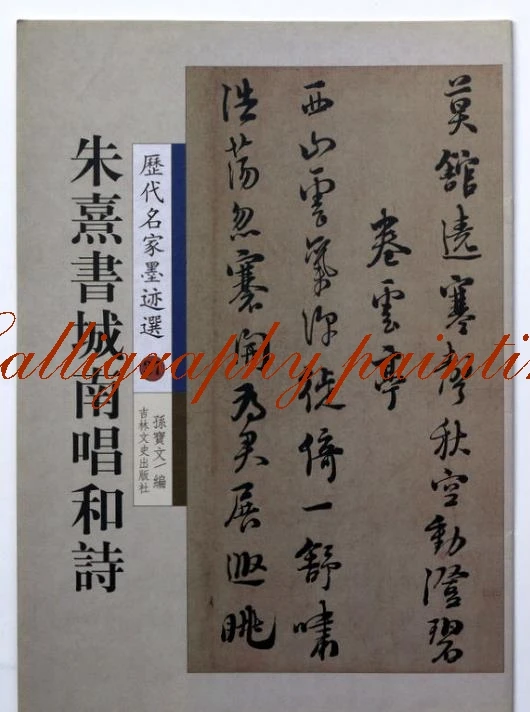 朱熹書城南唱和詩
歷代名家墨迹選
孫寶文/編
吉林文史出版社
莫館遶寒聲秋空動澄碧
卷雲亭
西山雲氣深徙倚一舒嘯
浩蕩忽褰開為君展遐眺
Calligraphy painti